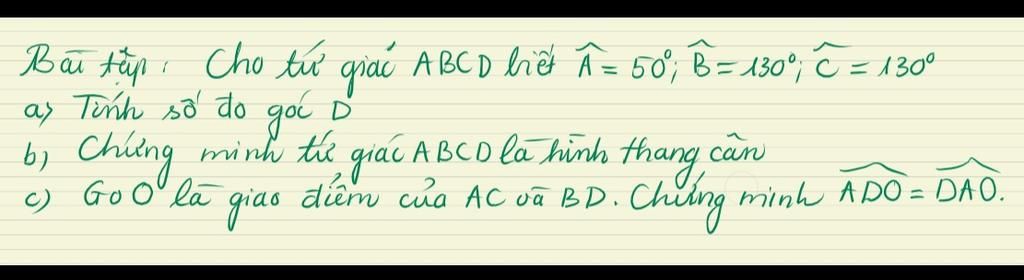 Bài tập: Cho tứ giác ABCD biết Â = 50°; B̂ = 130°; Ĉ = 130°
a) Tính số đo góc D
b) Chứng minh tứ giác ABCD là hình thang cân
c) Gọi O là giao điểm của AC và BD. Chứng minh \widehat{ADO} = \widehat{DAO}.